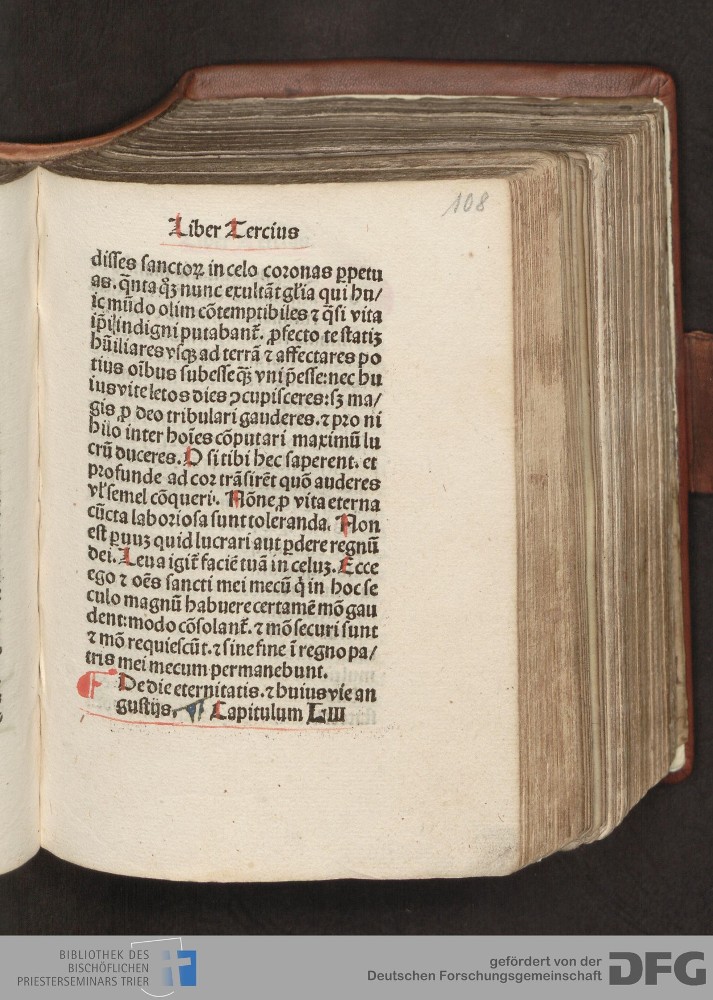 108
Liber Tercius
disses sanctoꝝ in celo coronas ꝑpetu
as. q̄nta qꝫ nunc exultāt gl'ia qui hu/
ic mūdo olim cōtemptibiles ⁊ q̄si vita
ip̄i indigni putabant᷑. ꝓfecto te statiꝫ
hūiliares vsqꝫ ad terrā ⁊ affectares po
tius oībus subesse qꝫ̄ vni p̄esse: nec hu
ius vite letos dies ꝯcupisceres: sꝫ ma/
gis ꝓ deo tribulari gauderes. ⁊ pro ni
hilo inter hoīes cōputari maximū lu
crū duceres. O si tibi hec saperent. et
profunde ad cor trāsirēt quō auderes
vl' semel cōqueri. Nōne ꝓ vita eterna
cūcta laboriosa sunt toleranda. Non
est ꝑuuꝫ quid lucrari aut ꝑdere regnū
dei. Leua igit᷑ faciē tuā in celuꝫ. Ecce
ego ⁊ oēs sancti mei mecū q̇ in hoc se
culo magnū habuere certamē mō gau
dent: modo cōsolant᷑. ⁊ mō securi sunt
⁊ mō requiescūt. ⁊ sine fine ī regno pa/
tris mei mecum permanebunt.
De die eternitatis. ⁊ huius vie an
gustijs. ¶ Capitulum LIII
BIBLIOTHEK DES
BISCHÖFLICHEN
PRIESTERSEMINARS TRIER
gefördert von der
Deutschen Forschungsgemeinschaft
DFG